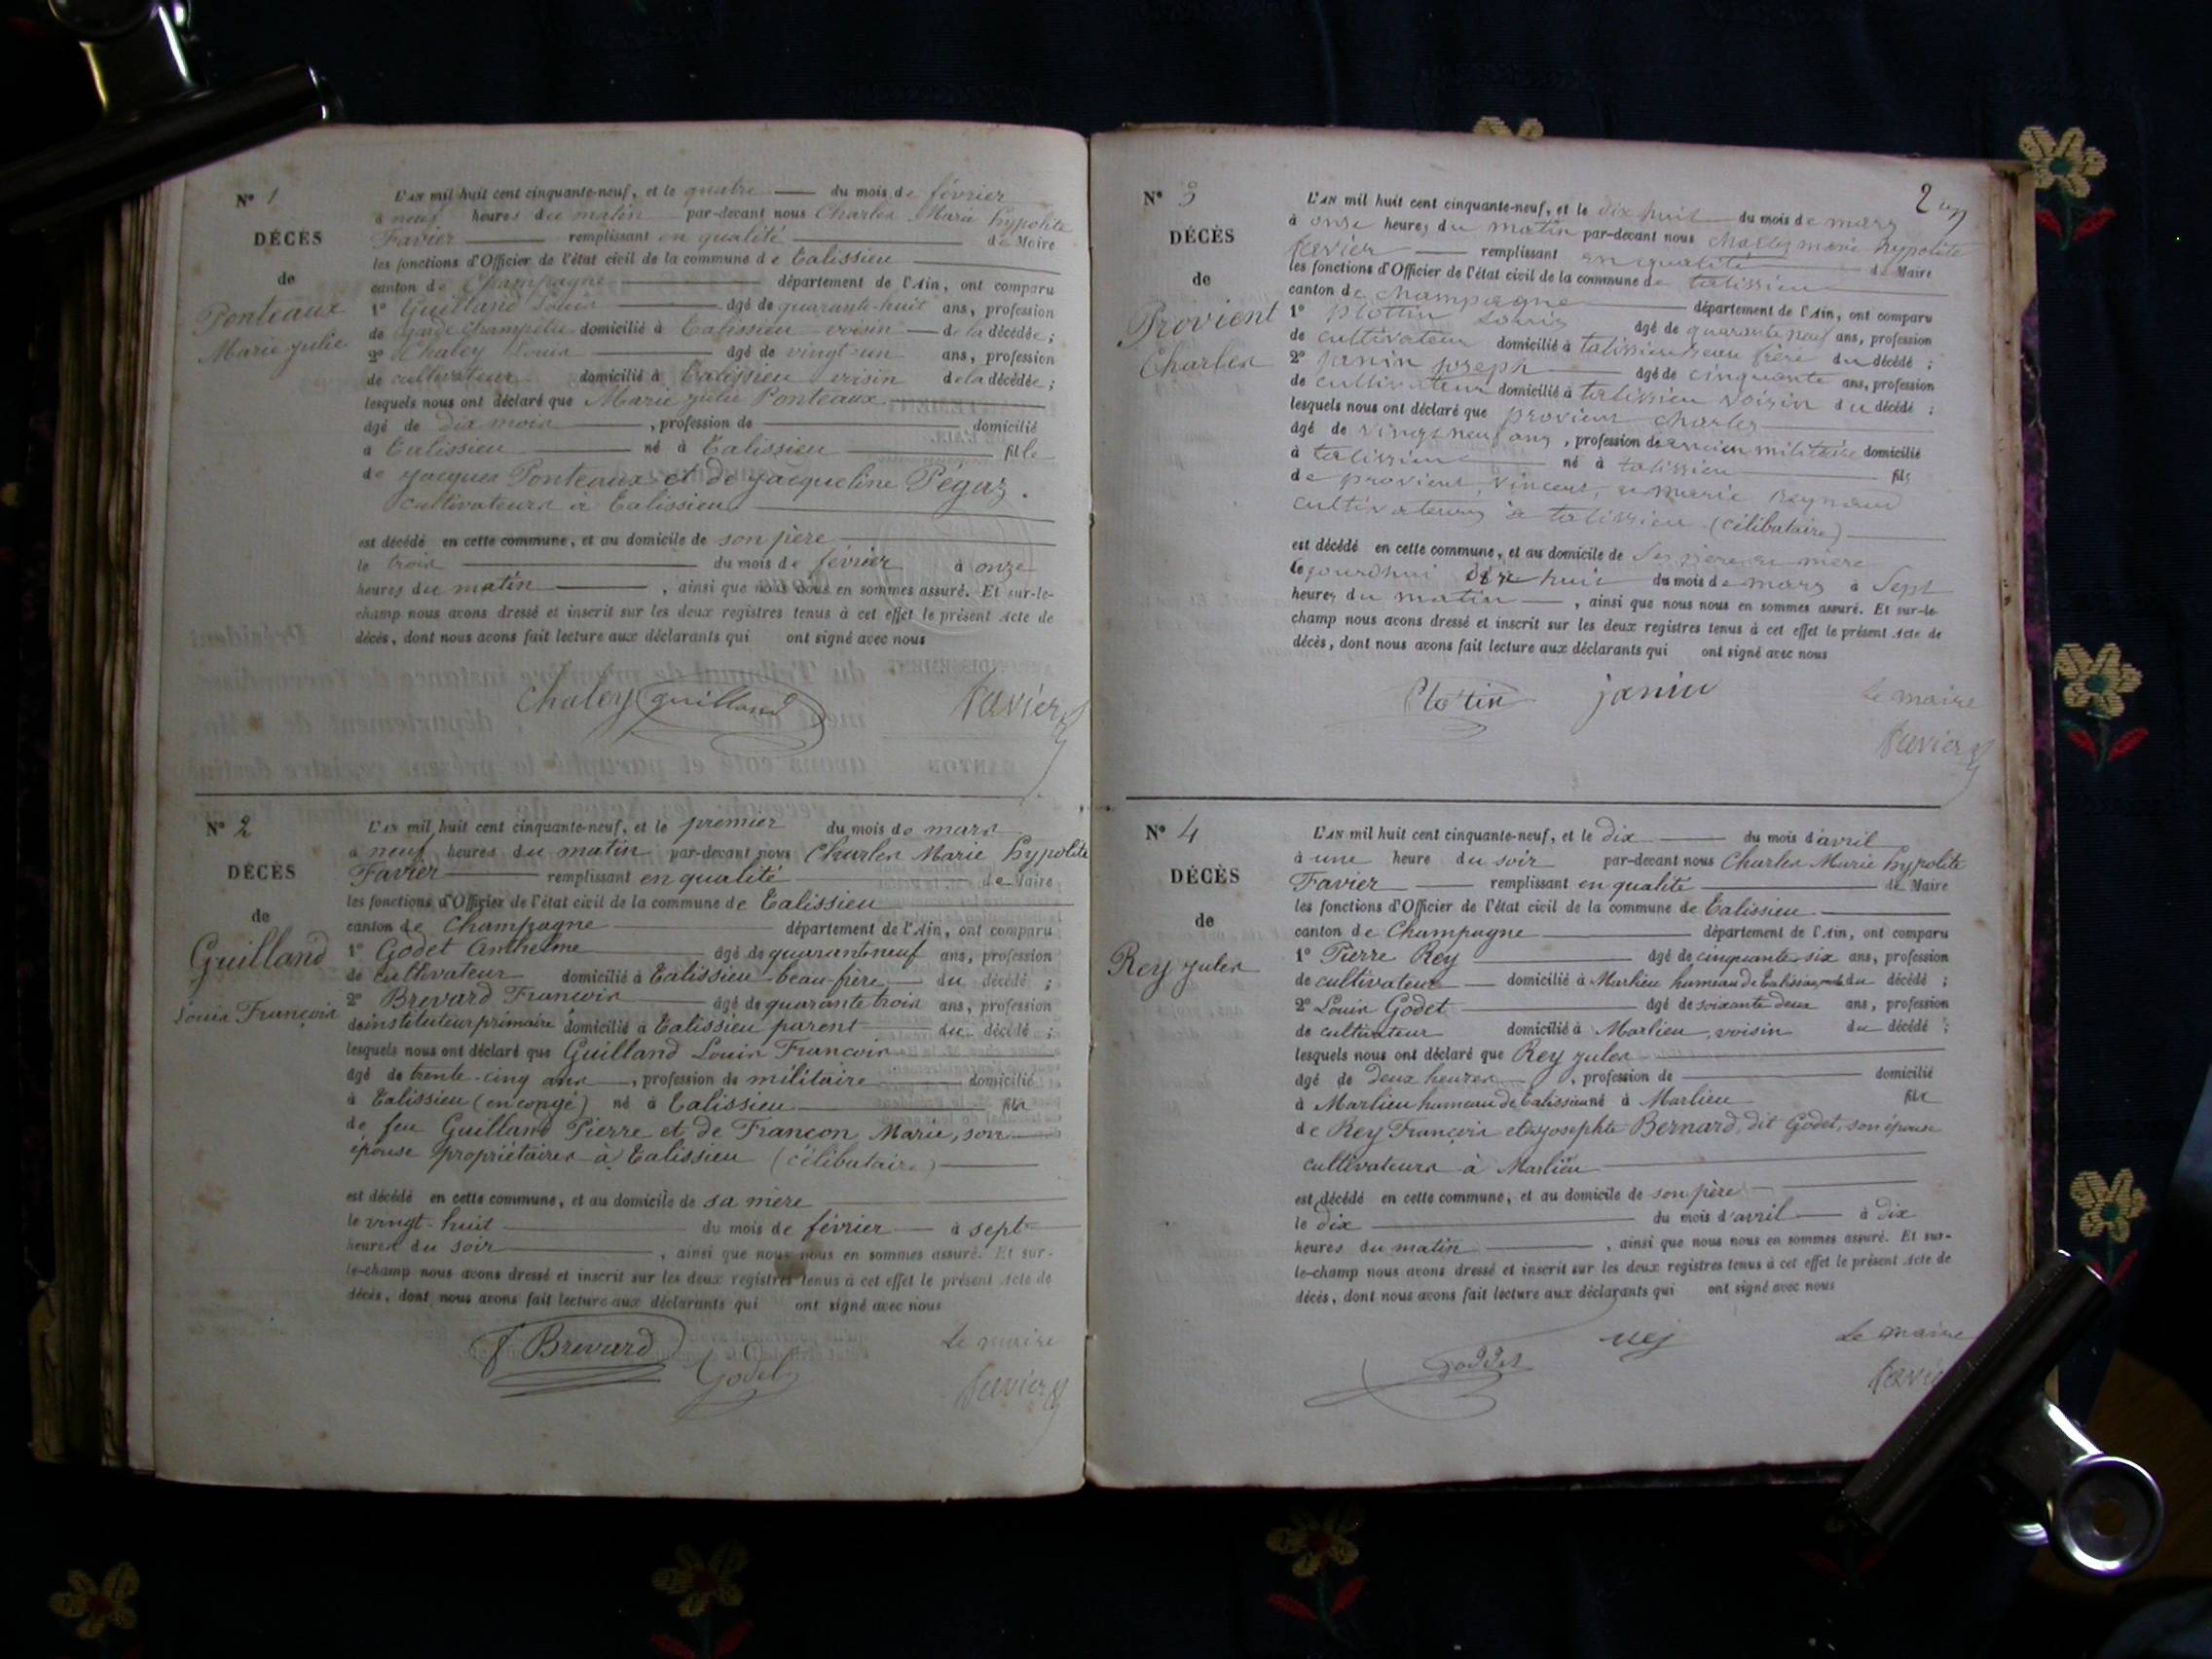 N° 1
DÉCÈS
de
Ponteaux
Marie Julie
L'AN mil huit cent cinquante-neuf, et le quatre du mois de février
à neuf heures du matin par-devant nous Charles Marie hypolite
Favier remplissant en qualité de Maire
les fonctions d'Officier de l'état civil de la commune de Talissieu
canton de Champagne département de l'Ain, ont comparu
1° Guilland Louis âgé de quarante-huit ans, profession
de garde champêtre domicilié à Talissieu voisin de la décédée ;
2° Chaley Louis âgé de vingt-un ans, profession
de cultivateur domicilié à Talissieu voisin de la décédée ;
lesquels nous ont déclaré que Marie Julie Ponteaux
âgé de dix mois , profession de domicilié
à Talissieu né à Talissieu fille
de Jacques Ponteaux et de Jacqueline Pégaz.
cultivateurs à Talissieu
est décédé en cette commune, et au domicile de son père
le trois du mois de février à onze
heures du matin , ainsi que nous nous en sommes assuré. Et sur-le-
champ nous avons dressé et inscrit sur les deux registres tenus à cet effet le présent Acte de
décès, dont nous avons fait lecture aux déclarants qui ont signé avec nous
Chaley guilland Favier
N° 2
DÉCÈS
de
Guilland
Louis François
L'AN mil huit cent cinquante-neuf, et le premier du mois de mars
à neuf heures du matin par-devant nous Charles Marie hypolite
Favier remplissant en qualité de Maire
les fonctions d'Officier de l'état civil de la commune de Talissieu
canton de Champagne département de l'Ain, ont comparu
1° Godet Anthelme âgé de quarante-neuf ans, profession
de cultivateur domicilié à Talissieu beau-frère du décédé ;
2° Brevard François âgé de quarante trois ans, profession
de instituteur primaire domicilié à Talissieu parent du décédé ;
lesquels nous ont déclaré que Guilland Louis François
âgé de trente-cinq ans , profession de militaire domicilié
à Talissieu (en congé) né à Talissieu fils
de feu Guilland Pierre et de Francon Marie, son
épouse propriétaires à Talissieu (célibataire)
est décédé en cette commune, et au domicile de sa mère
le vingt-huit du mois de février à sept
heures du soir , ainsi que nous nous en sommes assuré. Et sur-
le-champ nous avons dressé et inscrit sur les deux registres tenus à cet effet le présent Acte de
décès, dont nous avons fait lecture aux déclarants qui ont signé avec nous
f Brevard Godet Le maire
Favier
2
N° 3
DÉCÈS
de
Provient
Charles
L'AN mil huit cent cinquante-neuf, et le dix huit du mois de mars
à onze heures du matin par-devant nous charles marie hypolite
favier remplissant en qualité de Maire
les fonctions d'Officier de l'état civil de la commune de talissieu
canton de champagne département de l'Ain, ont comparu
1° plottin Louis âgé de quarante neuf ans, profession
de cultivateur domicilié à talissieu beau frère du décédé ;
2° janin joseph âgé de cinquante ans, profession
de cultivateur domicilié à talissieu voisin du décédé ;
lesquels nous ont déclaré que provient charles
âgé de vingt neuf ans , profession de ancien militaire domicilié
à talissieu né à talissieu fils
de provient vincent, et marie Reynaud
cultivateurs à talissieu (célibataire)
est décédé en cette commune, et au domicile de ses père et mère
le jourdhui dix huit du mois de mars à sept
heures du matin , ainsi que nous nous en sommes assuré. Et sur-le-
champ nous avons dressé et inscrit sur les deux registres tenus à cet effet le présent Acte de
décès, dont nous avons fait lecture aux déclarants qui ont signé avec nous
janin Le maire
Favier
N° 4
DÉCÈS
de
Rey Jules
L'AN mil huit cent cinquante-neuf, et le dix du mois d'avril
à une heure du soir par-devant nous Charles Marie hypolite
Favier remplissant en qualité de Maire
les fonctions d'Officier de l'état civil de la commune de Talissieu
canton de Champagne département de l'Ain, ont comparu
1° Pierre Rey âgé de cinquante-six ans, profession
de cultivateur domicilié à Marlieu hameau de Talissieu du décédé ;
2° Louis Godet âgé de soixante deux ans, profession
de cultivateur domicilié à Marlieu, voisin du décédé ;
lesquels nous ont déclaré que Rey Jules
âgé de deux heures , profession de domicilié
à Marlieu hameau de Talissieu né à Marlieu fils
de Rey François et de Josephte Bernard, dit Godet, son épouse
cultivateurs à Marlieu
est décédé en cette commune, et au domicile de son père
le dix du mois d'avril à dix
heures du matin , ainsi que nous nous en sommes assuré. Et sur-
le-champ nous avons dressé et inscrit sur les deux registres tenus à cet effet le présent Acte de
décès, dont nous avons fait lecture aux déclarants qui ont signé avec nous
Le maire